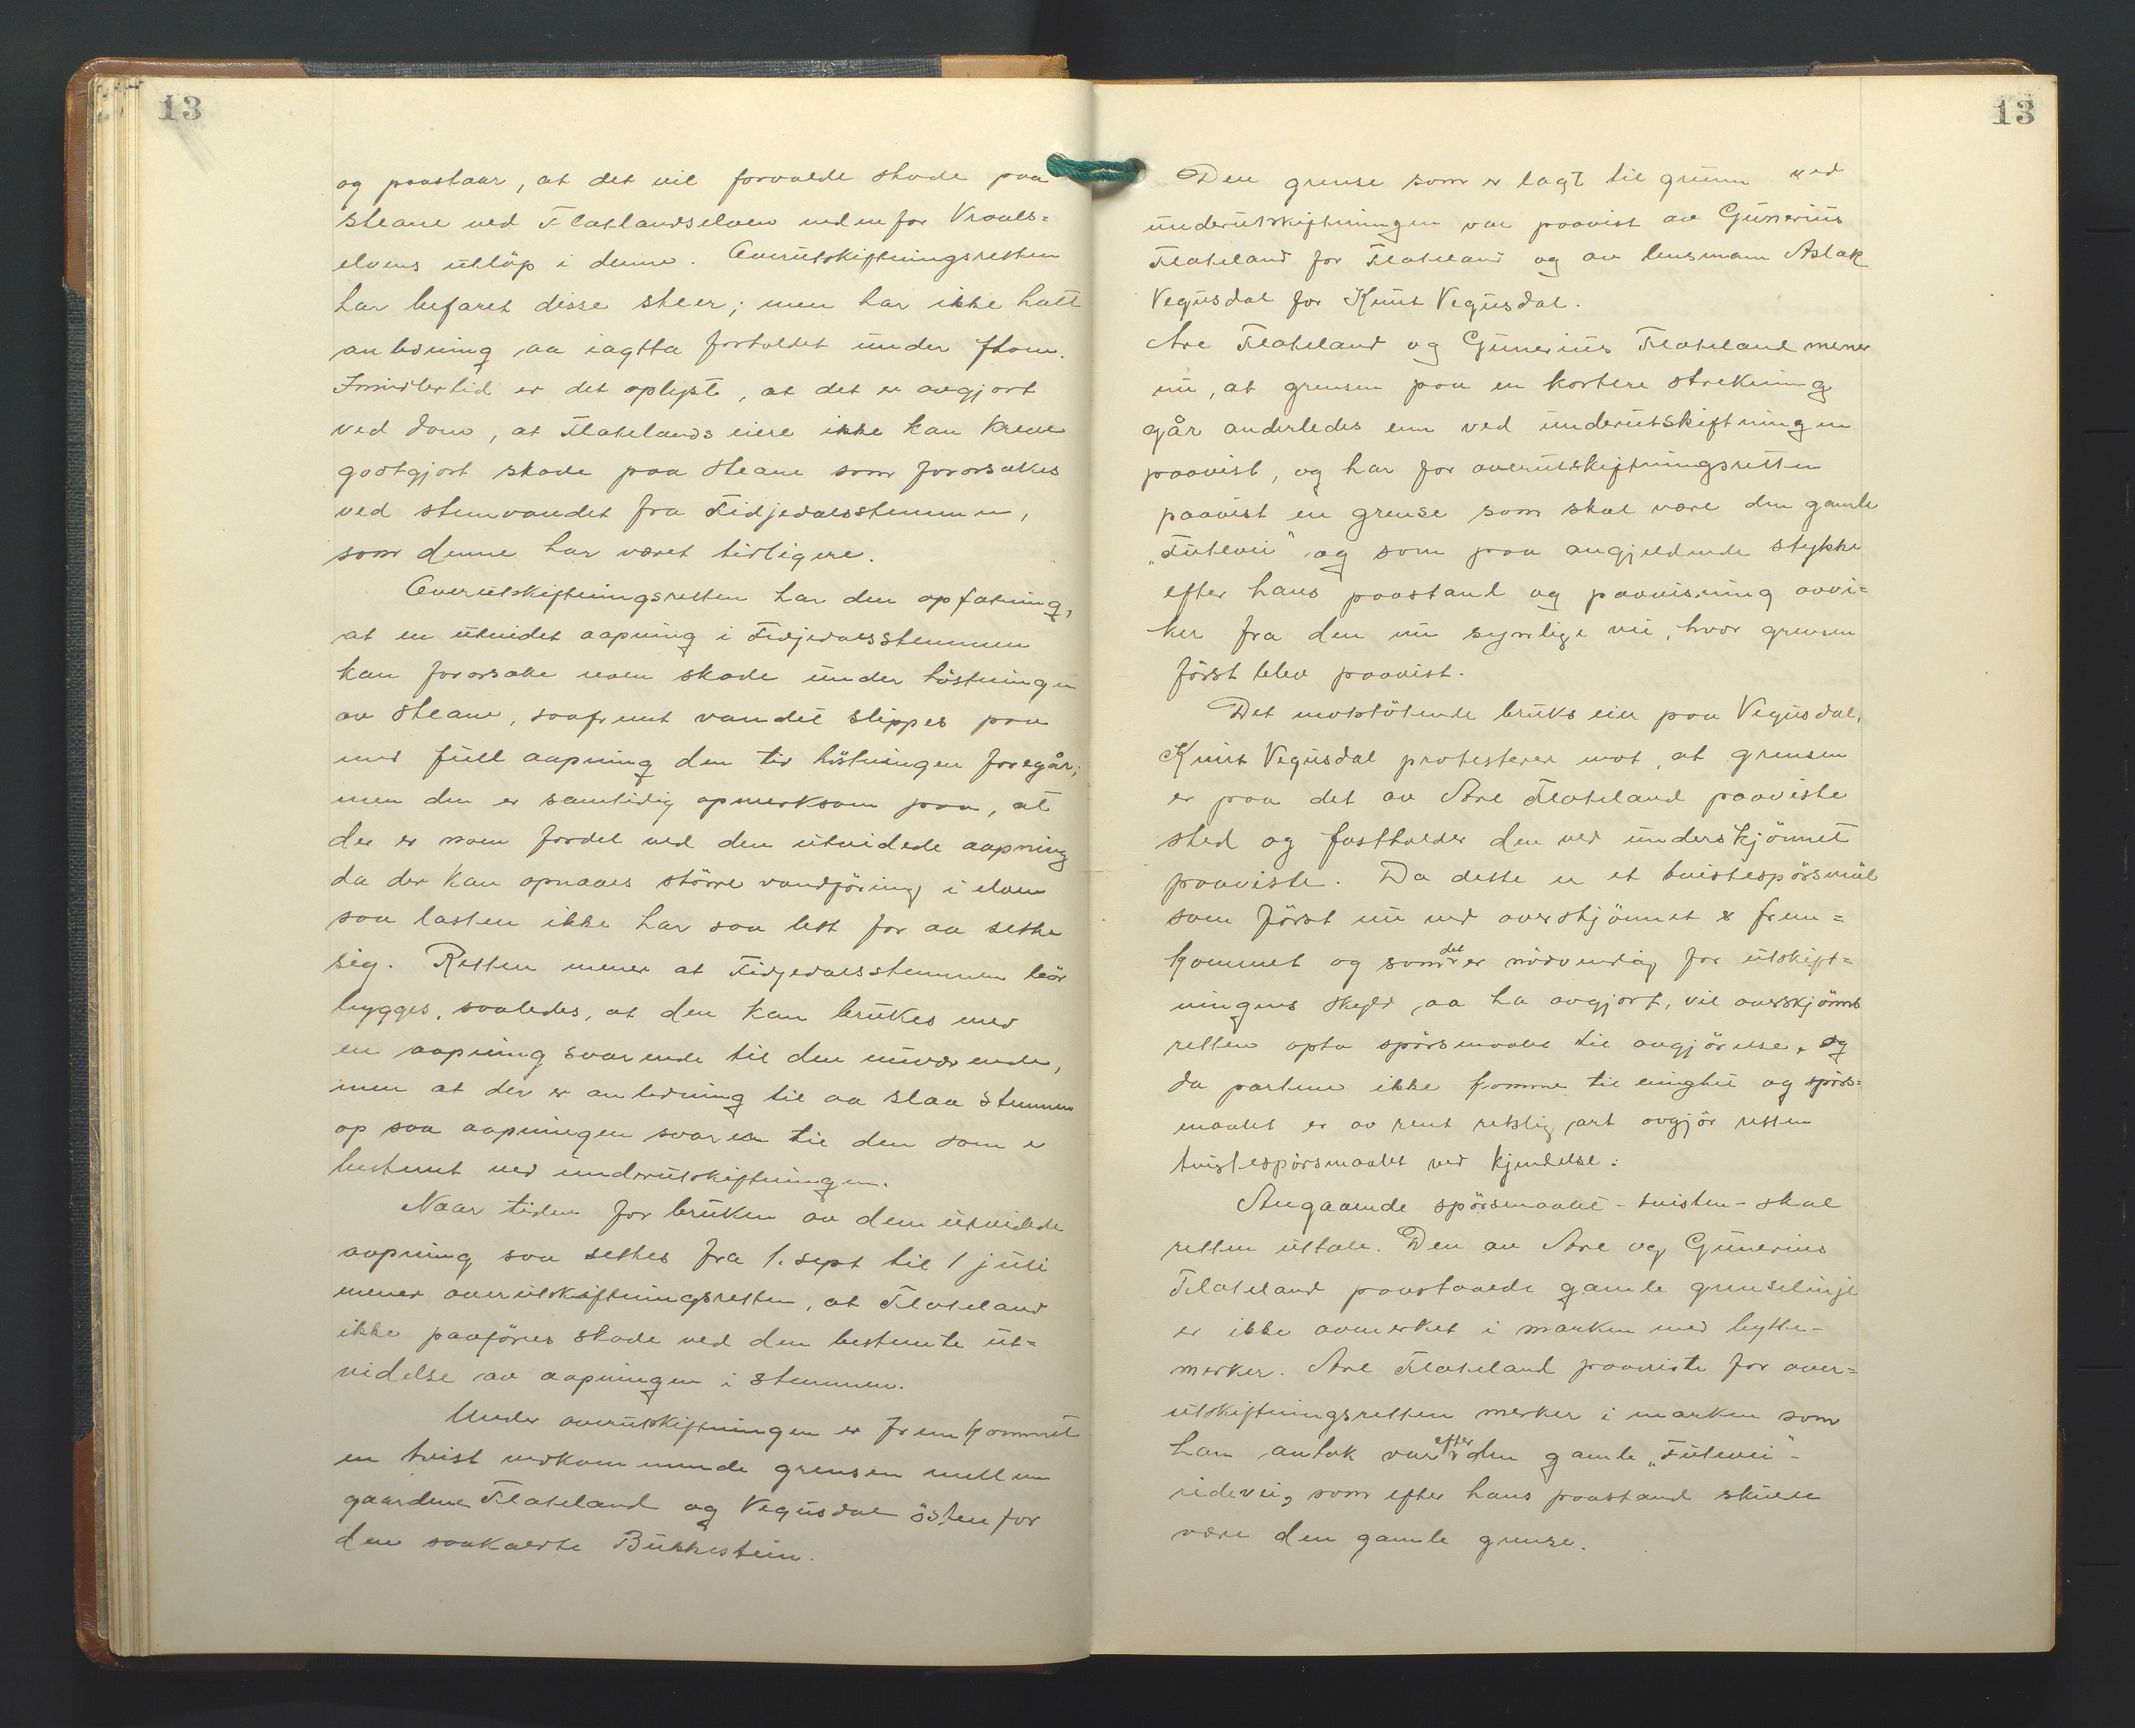 13
og paastaar, at det vil forvolde skade paa
sleaane ved Flatlandselven nedenfor Vraals=
elvens utløp i denne. Overutskiftningsretten
har befaret disse sleer; men har ikke hatt
anledning aa iagtta forholdet under flom.
Imidlertid er det oplyst, at det er avgjort
ved dom, at Flatelands eiere ikke kan kreve
godtgjort skade paa sleane som forårsakes
ved stemvandet fra Fidjedalsstemmen,
som denne har været tidligere.
Overutskiftningsretten har den opfatning,
at en utvidet aapning i Fidjedalsstemmen
kan forårsake noen skade under høstningen
av sleane, saafremt vandet slippes paa
med full aapning den tid høstningen foregår;
men den er samtidig opmerksom paa, at
der er noen fordel ved den utvidede aapning
da der kan opnaaes större vandföring i elven
saa lasten ikke har saa lett for aa sette
sig. Retten mener at Fidjedalsstemmen bör
bygges, saaledes, at den kan brukes med
en aapning svarende til den nuværende,
men at der er anledning til aa slaa stemmen
op saa aapningen svarer til den som er
bestemt ved underutskiftningen.
Naar tiden for bruken av den utvidede
aapning saa settes fra 1. sept til 1 juli
mener overutskiftningsretten, at Flateland
ikke paaföres skade ved den bestemte ut=
videlse av aapningen i stemmen.
Under overutskiftningen er fremkommet
en tvist vedkommende grensen mellem
gaardene Flateland og Vegusdal östenfor
den saakaldte Bukkestein.
13
Den grense som er lagt til grunn ved
underutskiftningen var paavist av Gunerius
Flateland for Flateland og av lensmann Aslak
Vegusdal for Knut Vegusdal.
Are Flateland og Gunerius Flateland mener
nu, at grensen paa en kortere strekning
går anderledes enn ved underutskiftningen
paavist, og har for overutskiftningsretten
paavist en grense som skal være den gamle
„Futevei" og som paa angjeldende stykke
efter hans paastand og paavisning avvi=
ker fra den nu synlige vei, hvor grensen
först blev paavist.
Det motstötende bruks eier paa Vegusdal,
Knut Vegusdal protesterer mot, at grensen
er paa det av Are Flateland paaviste
sted og fastholder den ved underskjönnet
paaviste. Da dette er et tvistespörsmål
som först nu ved overskjönnet er frem=
kommet og som det er nödvendig for utskift=
ningens skyld aa ha avgjort, vil overskjönns
retten opta spörsmaalet til avgjörelse, og
da partene ikke kommer til enighet og spörs=
maalet er av rent retslig art avgjör retten
tvistespörsmaalet ved kjendelse:
Angaaende spörsmaalet - tvisten - skal
retten uttale. Den av Are og Gunerius
Flateland paastaaede gamle grenselinje
er ikke avmerket i marken med bytte-
merker. Are Flateland paaviste for over=
utskiftningsretten merker i marken som
han antok var efter den gamle „Futevei"-
ridevei, som efter hans paastand skulle
være den gamle grense.